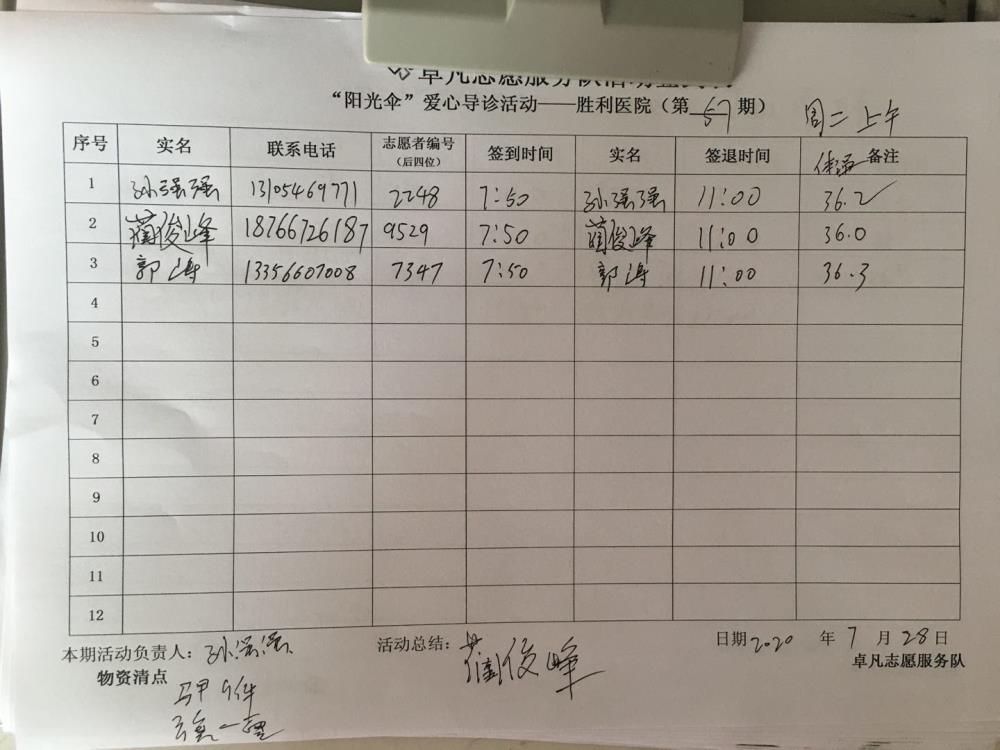 卓凡志愿服务队活动签到表
“阳光伞”爱心导诊活动——胜利医院（第 57 期） 周二上午
序号 实名 联系电话 志愿者编号（后四位） 签到时间 实名 签退时间 体温 备注
1 孙强强 13105469771 2248 7:50 孙强强 11:00 36.2
2 蔺俊峰 18766726187 9529 7:50 蔺俊峰 11:00 36.0
3 郭涛 13356607008 7347 7:50 郭涛 11:00 36.3
4
5
6
7
8
9
10
11
12
本期活动负责人：孙强强 活动总结：蔺俊峰 日期 2020 年 7 月 28 日
物资清点 卓凡志愿服务队
马甲 9件